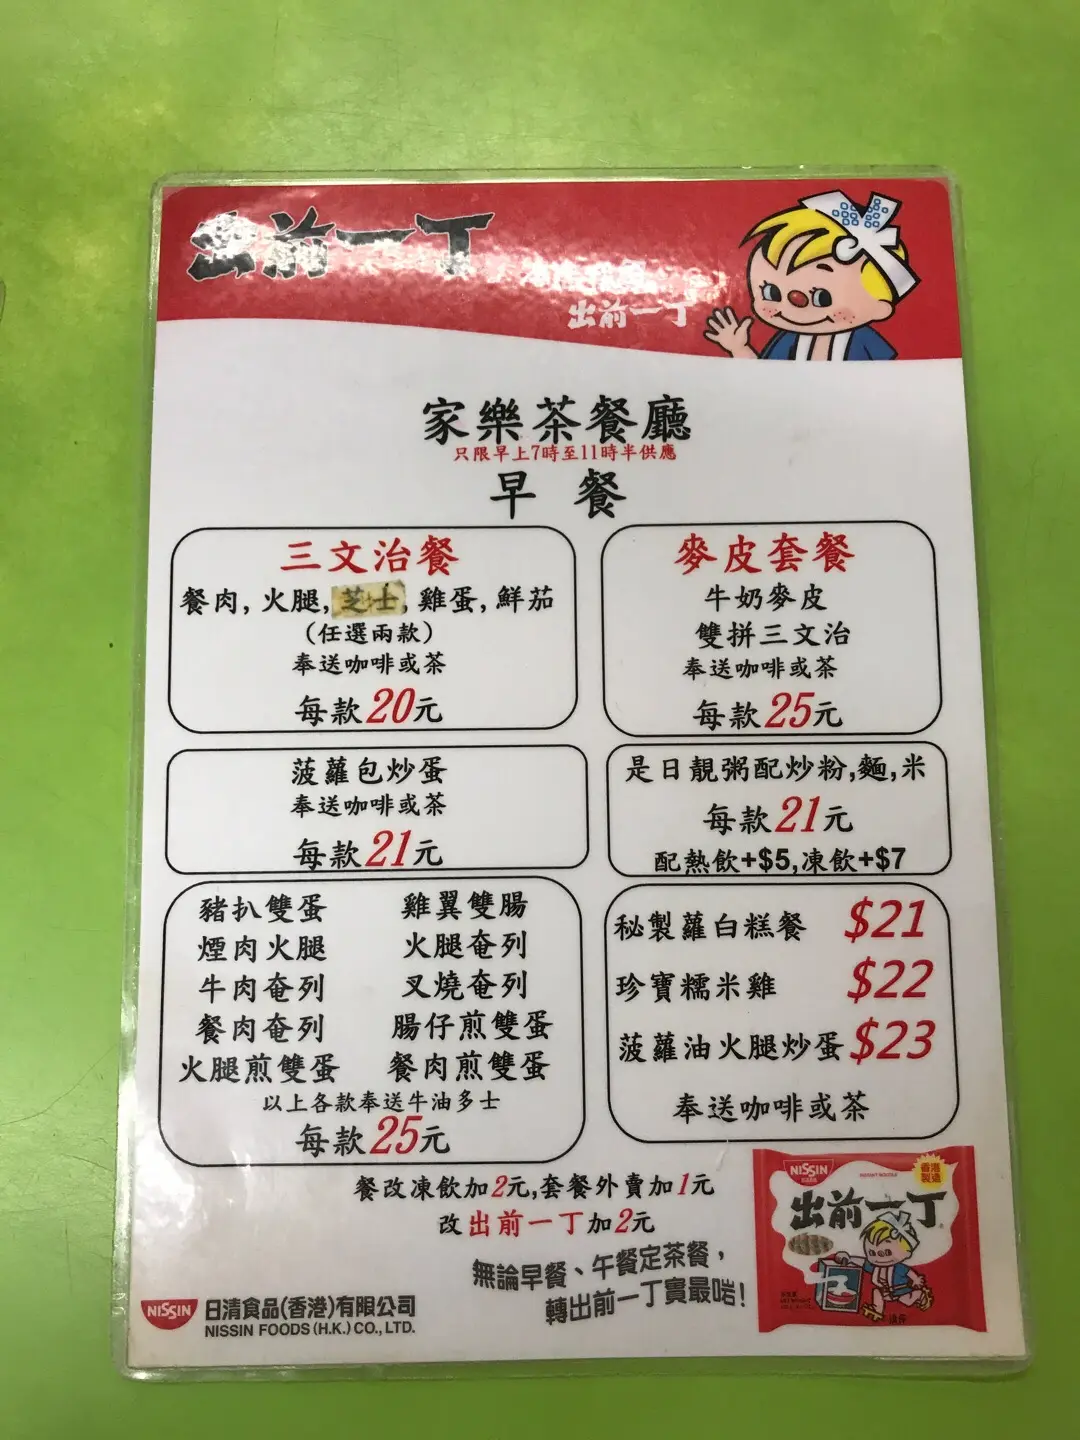 出前一丁
出前一丁
家樂茶餐廳
只限早上7時至11時半供應
早 餐
三文治餐
餐肉, 火腿, 芝士, 雞蛋, 鮮茄
(任選兩款)
奉送咖啡或茶
每款20元
麥皮套餐
牛奶麥皮
雙拼三文治
奉送咖啡或茶
每款25元
菠蘿包炒蛋
奉送咖啡或茶
每款21元
是日靚粥配炒粉,麵,米
每款21元
配熱飲+$5,凍飲+$7
豬扒雙蛋 雞翼雙腸
煙肉火腿 火腿奄列
牛肉奄列 叉燒奄列
餐肉奄列 腸仔煎雙蛋
火腿煎雙蛋 餐肉煎雙蛋
以上各款奉送牛油多士
每款25元
秘製蘿白糕餐 $21
珍寶糯米雞 $22
菠蘿油火腿炒蛋 $23
奉送咖啡或茶
餐改凍飲加2元,套餐外賣加1元
改出前一丁加2元
無論早餐、午餐定茶餐，
轉出前一丁實最啱！
NISSIN 日清食品(香港)有限公司
NISSIN FOODS (H.K.) CO., LTD.
NISSIN
香港
製造
出前一丁